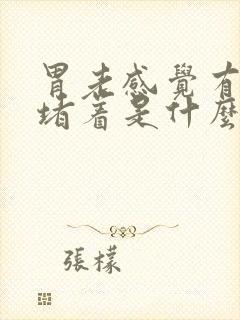 胃老感覺有
堵着是什麼
張檬